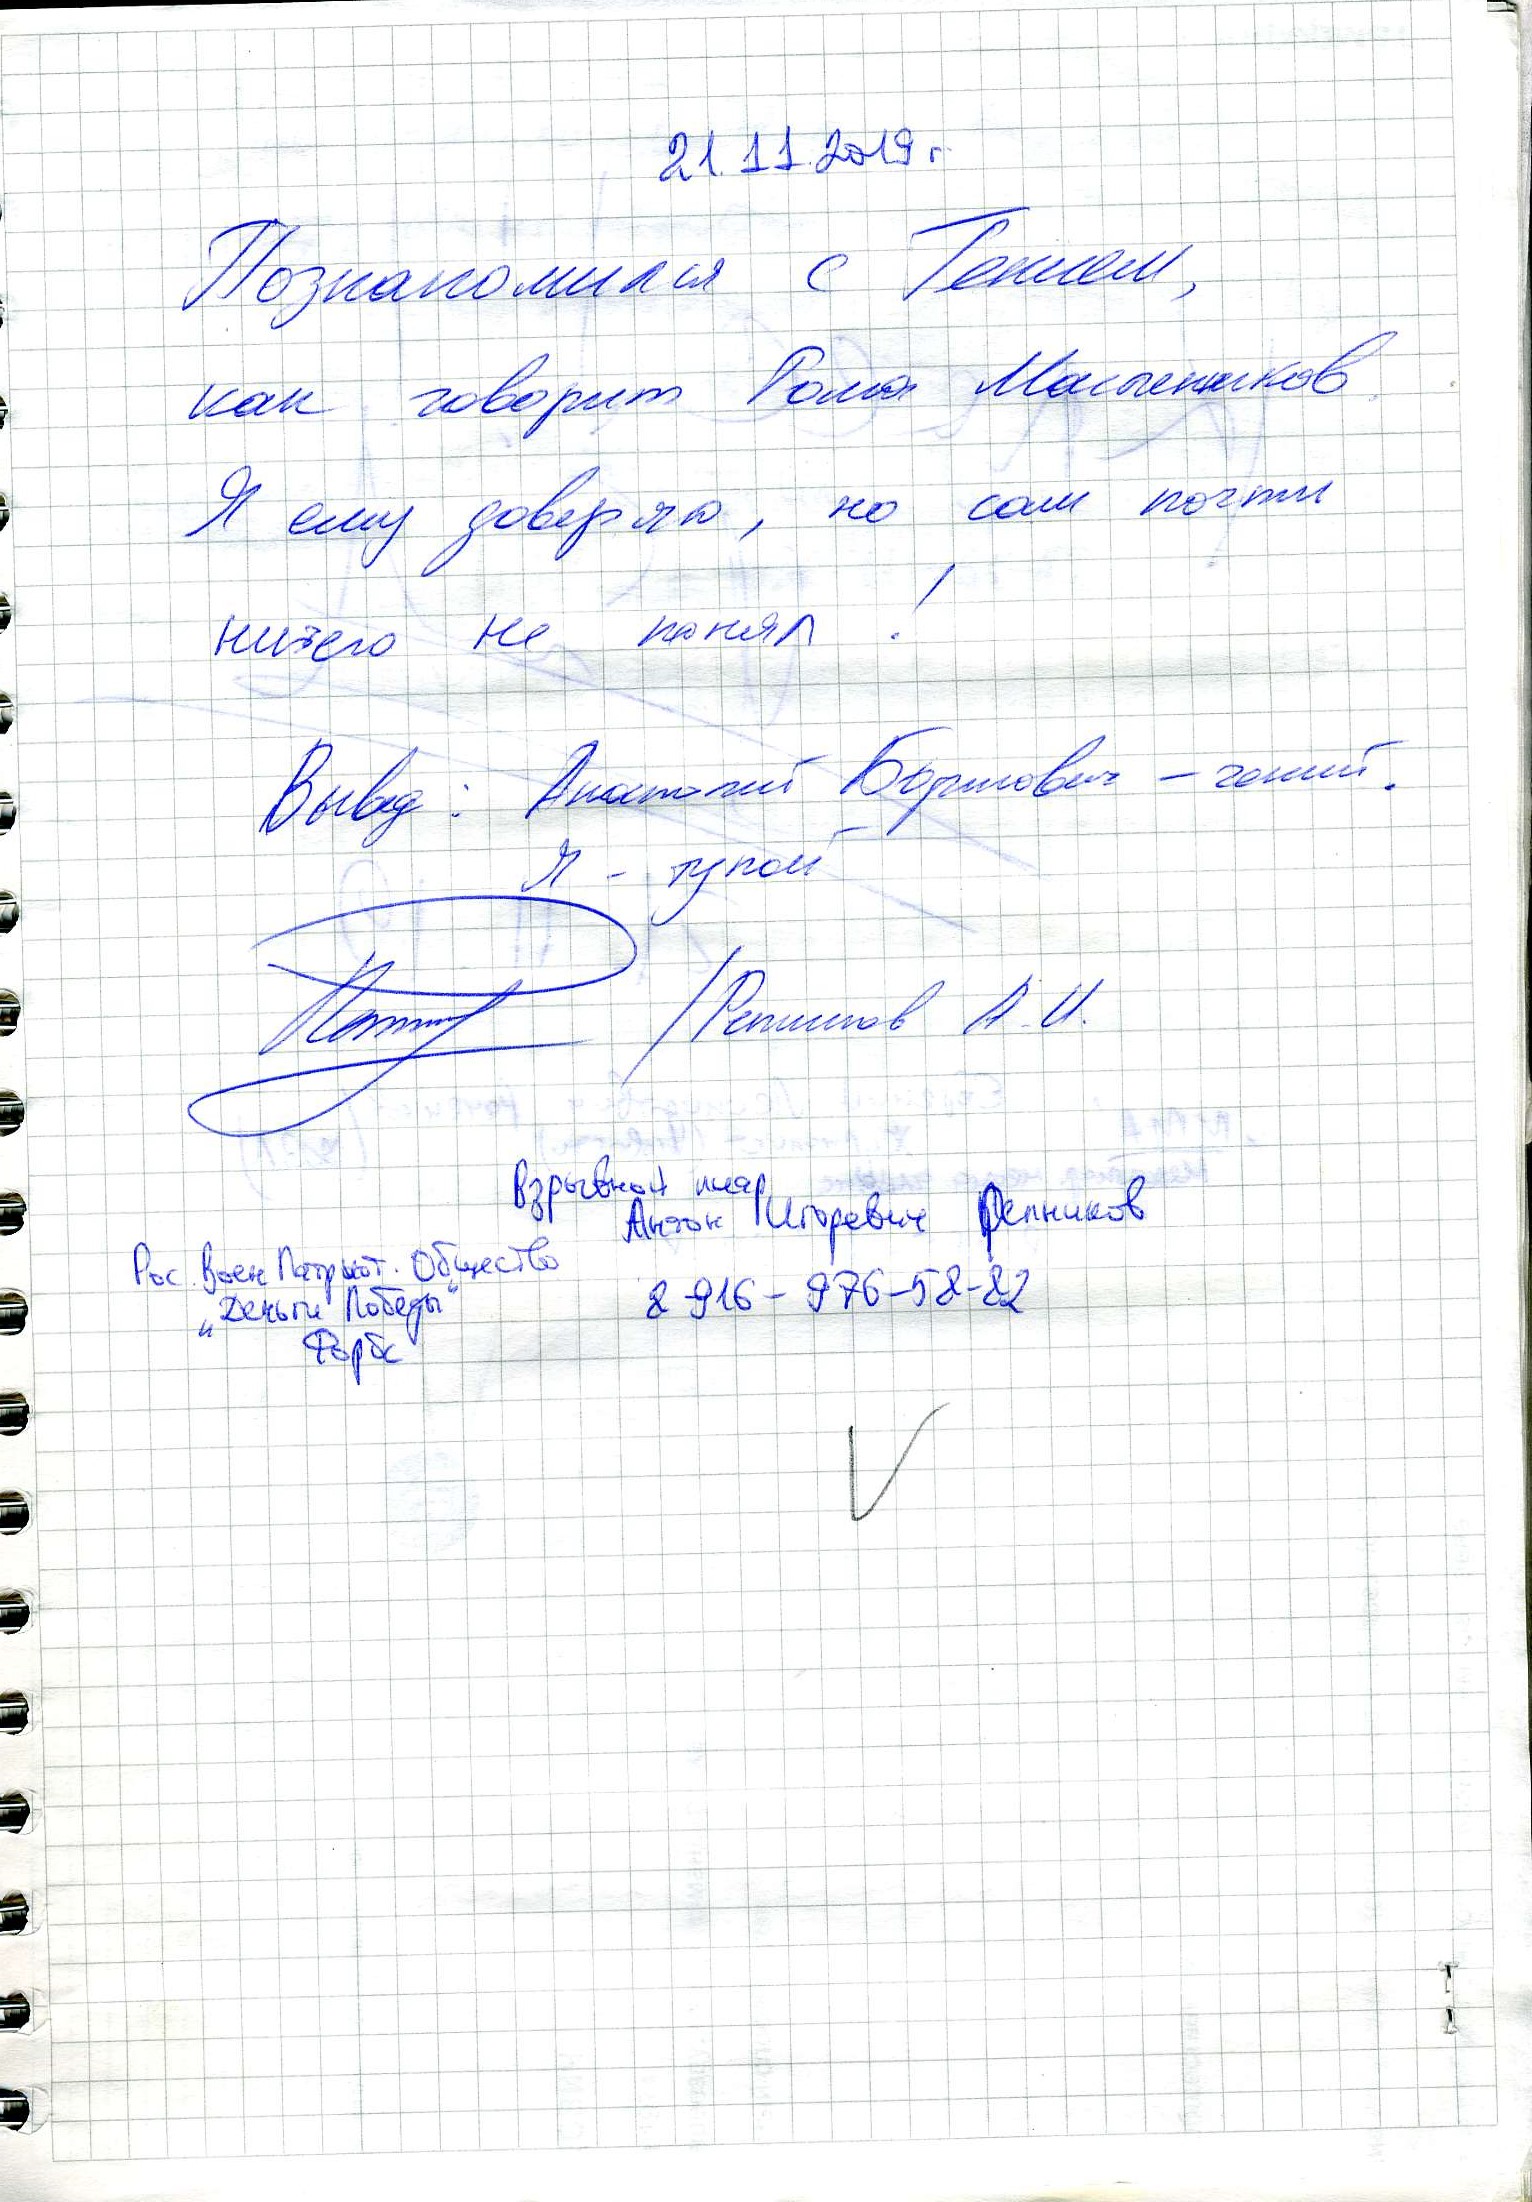 21.11.2019 г.
Познакомился с Гением,
как говорит Рома Масленников.
Я ему доверяю, но сам почти
ничего не понял!
Вывод: Анатолий Борисович – гений.
Я – тупой
/Репников А.И.
Взрывной пиар
Антон Игоревич Репников
Рос. Воен Патриот. Общество
„Деньги Победы"
Форбс
8-916-976-58-82